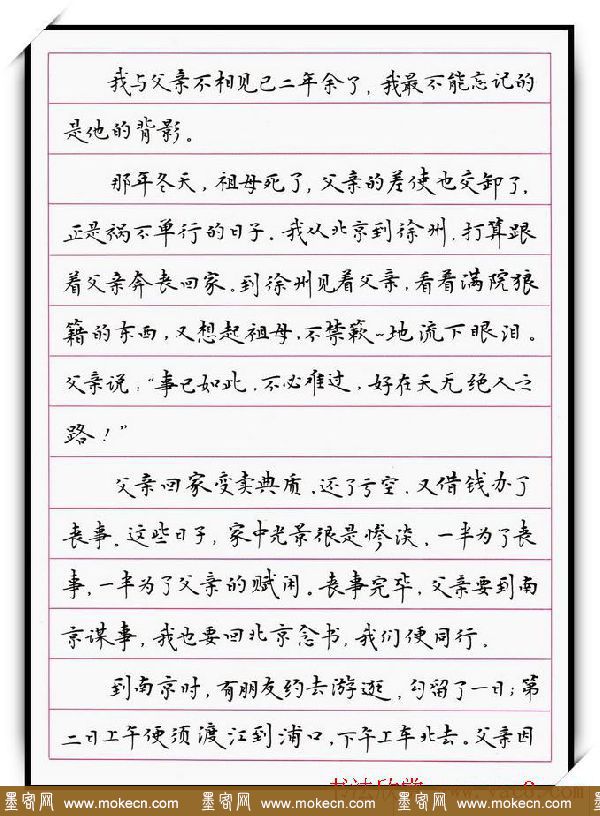 我与父亲不相见已二年余了，我最不能忘记的
是他的背影。
那年冬天，祖母死了，父亲的差使也交卸了，
正是祸不单行的日子。我从北京到徐州，打算跟
着父亲奔丧回家。到徐州见着父亲，看着满院狼
籍的东西，又想起祖母，不禁簌~地流下眼泪。
父亲说：“事已如此，不必难过，好在天无绝人之
路！”
父亲回家变卖典质，还了亏空，又借钱办了
丧事。这些日子，家中光景很是惨淡，一半为了丧
事，一半为了父亲的赋闲。丧事完毕，父亲要到南
京谋事，我也要回北京念书，我们便同行。
到南京时，有朋友约去游逛，勾留了一日；第
二日上午便须渡江到浦口，下午上车北去。父亲因
墨客网 www.mokecn.com 墨客网 www.mokecn.com 墨客网 www.mokecn.com